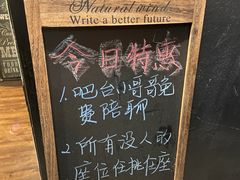 Natural wind
Write a better future
今日特惠
1.吧台小哥哥免
费陪聊
2.所有没人的
座位任挑任座